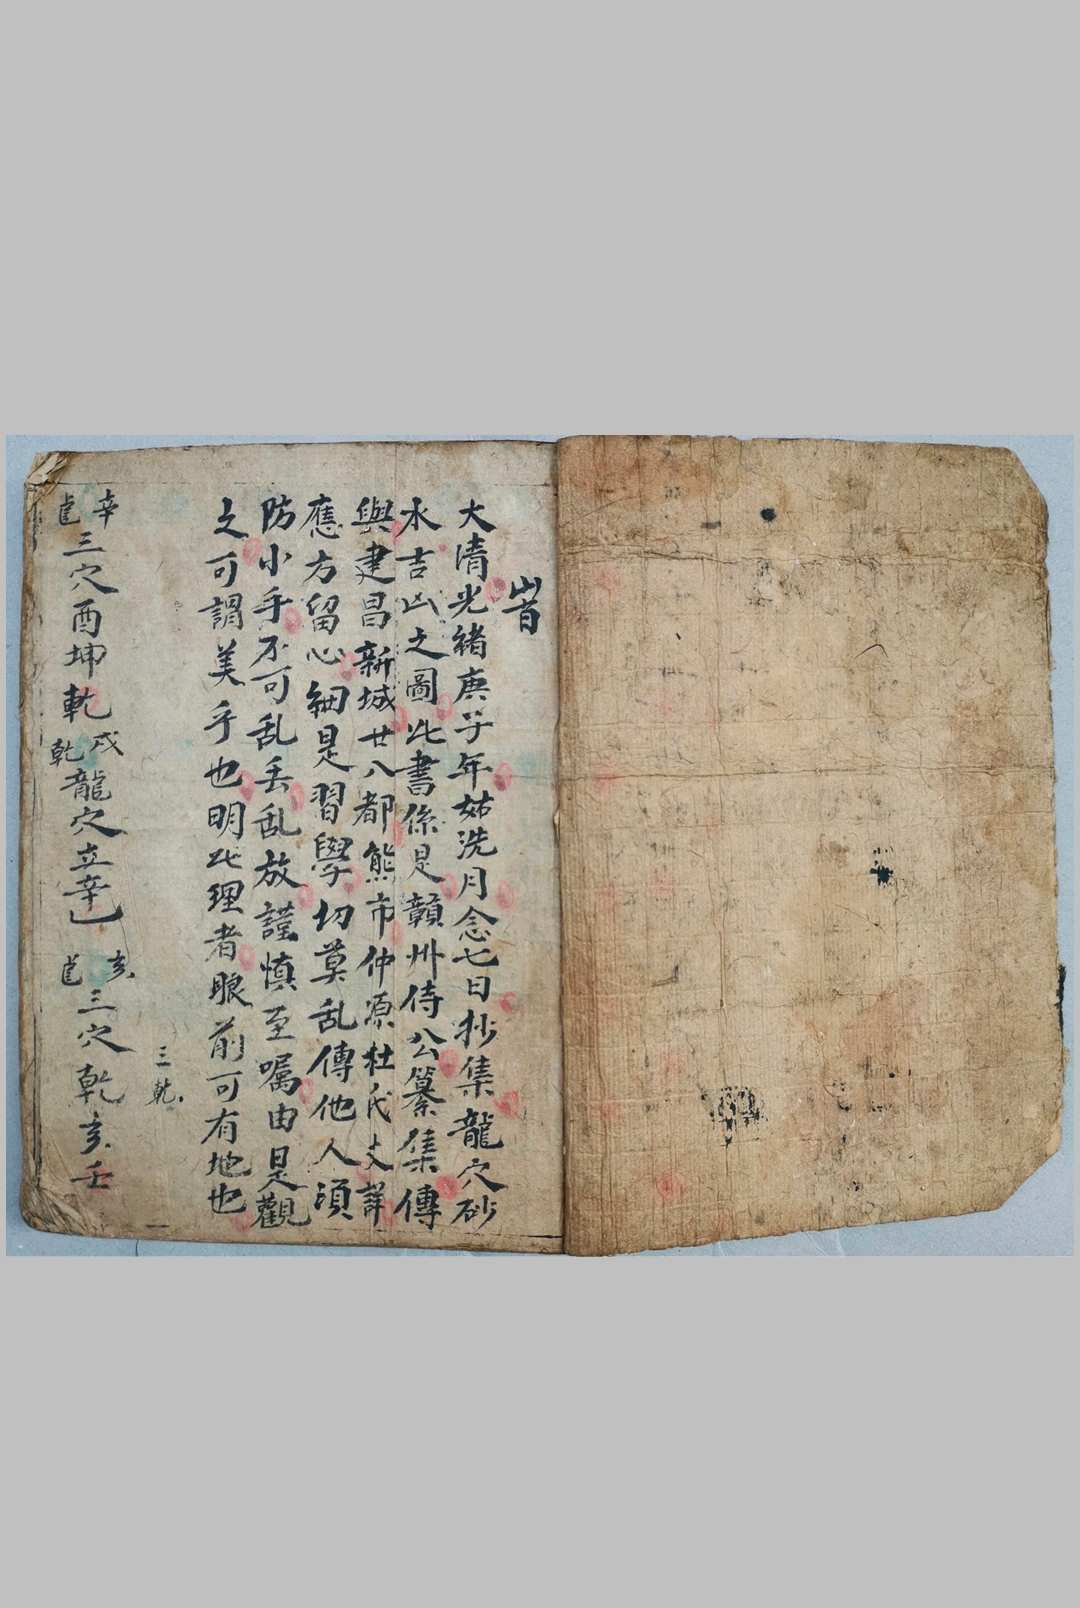 大清光緒庚子年姑洗月念七日抄集龍穴砂
水吉凶之圖此書係是贛州侍公纂集傳
與建昌新城廿八都熊市仲源杜氏丈詳
應方留心細是習學切莫乱傳他人須
防小手不可乱丢乱放謹慎至嘱由是觀
之可謂美乎也明此理者眼前可有地也
三乾
辛
三穴酉坤乾
戌
乾
龍穴立辛
亥
三穴乾亥壬